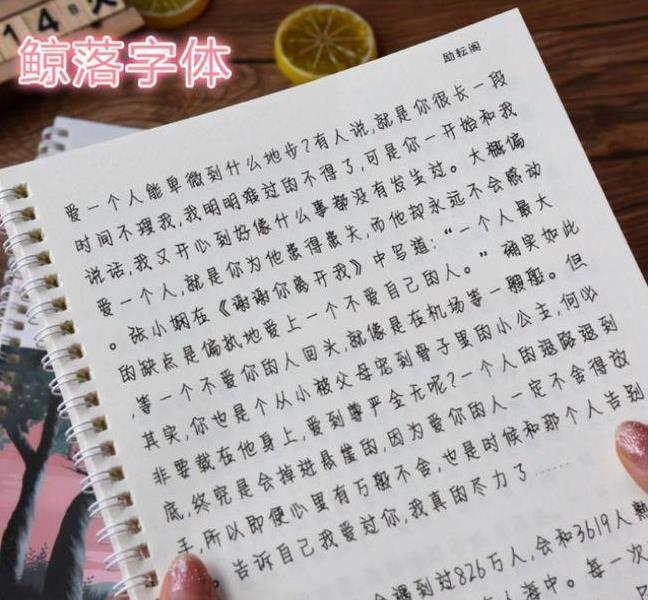 鲸落字体
励耘阁
爱一个人能卑微到什么地步?有人说,就是你很长一段
时间不理我,我明明难过的不得了,可是你一开始和我
说话,我又开心到好像什么事都没有发生过。大概偏
爱一个人,就是你为他患得患失,而他却永远不会感动
。张小娴在《谢谢你离开我》中写道:“一个人最大
的缺点是偏执地爱上一个不爱自己的人。”确实如此
,等一个不爱你的人回头,就像是在机场等一艘船。但
其实,你也是个从小被父母宠到骨子里的小公主,何必
非要栽在他身上,爱到尊严全无呢?一个人的退路退到
底,终究是会掉进悬崖的,因为爱你的人一定不舍得放
手,所以即便心里有万般不舍,也是时候和那个人告别
。告诉自己我爱过你,我真的尽力了……
遇到过826万人,会和3619人熟
人海中。每一次